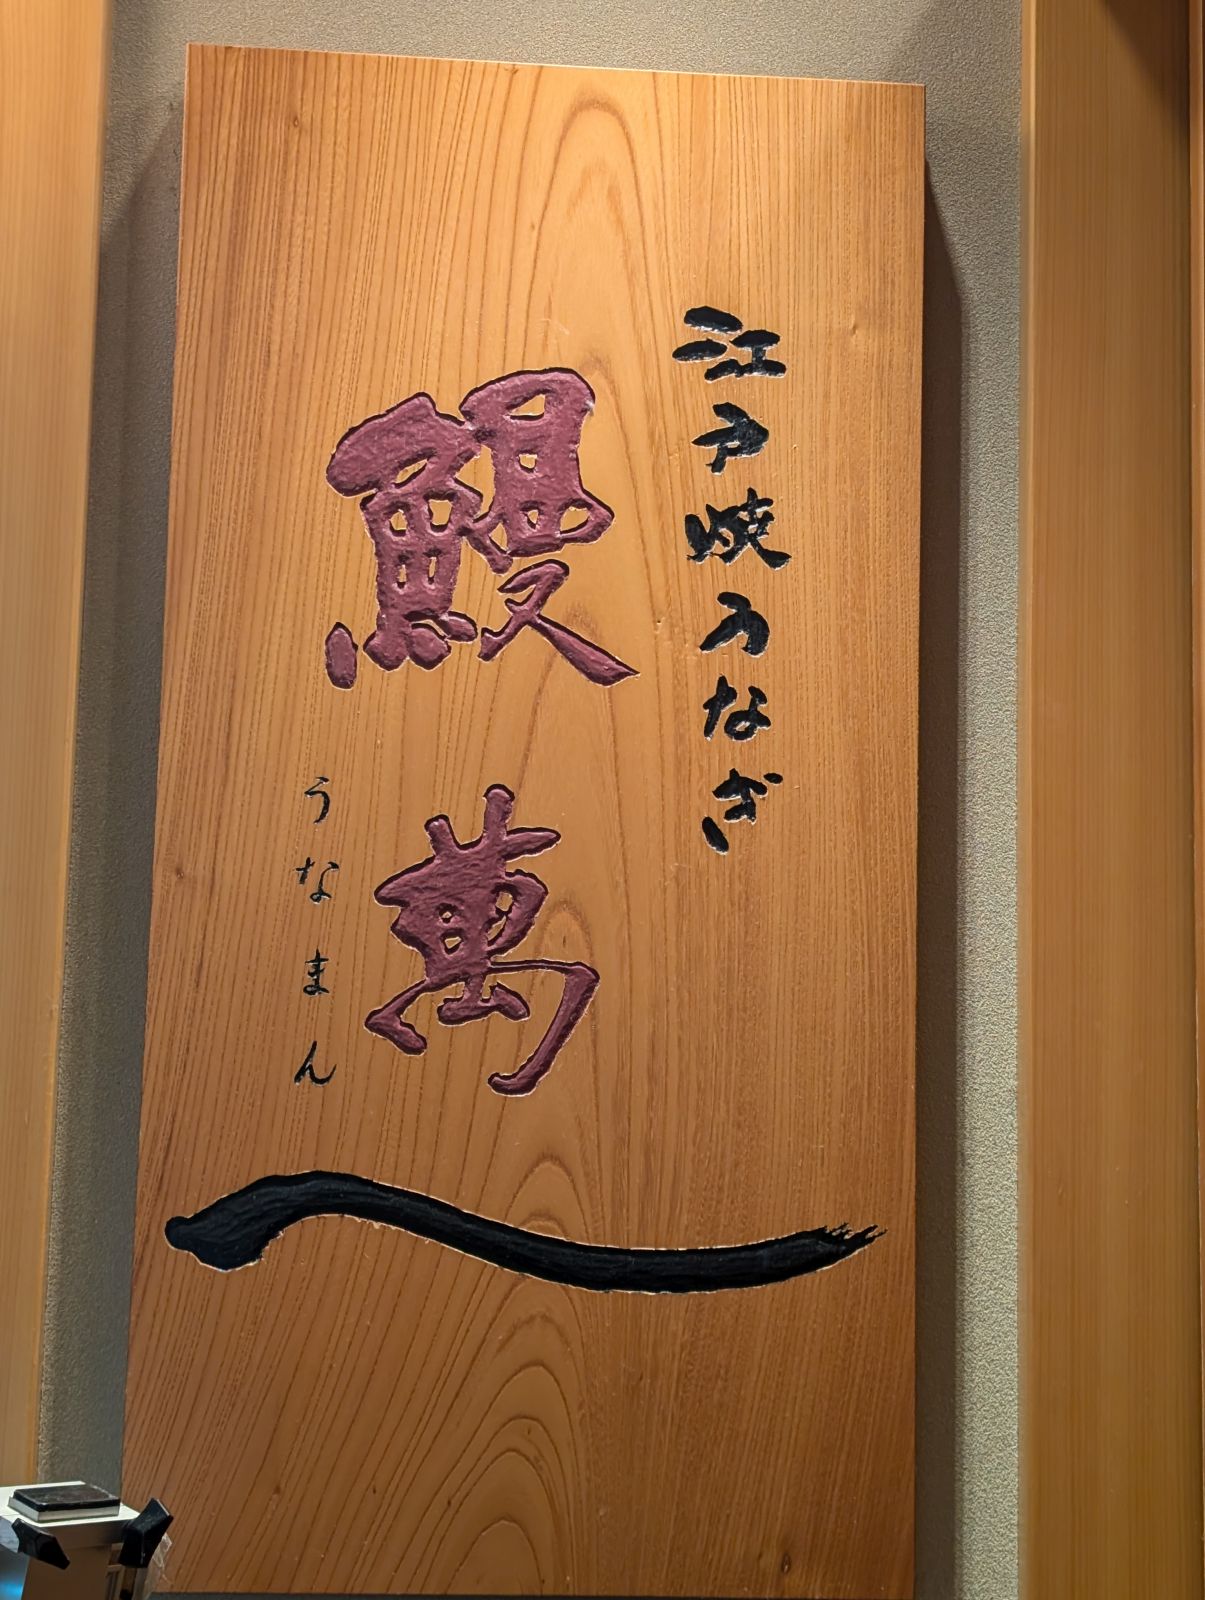 江戸焼うなぎ
鰻萬
うなまん